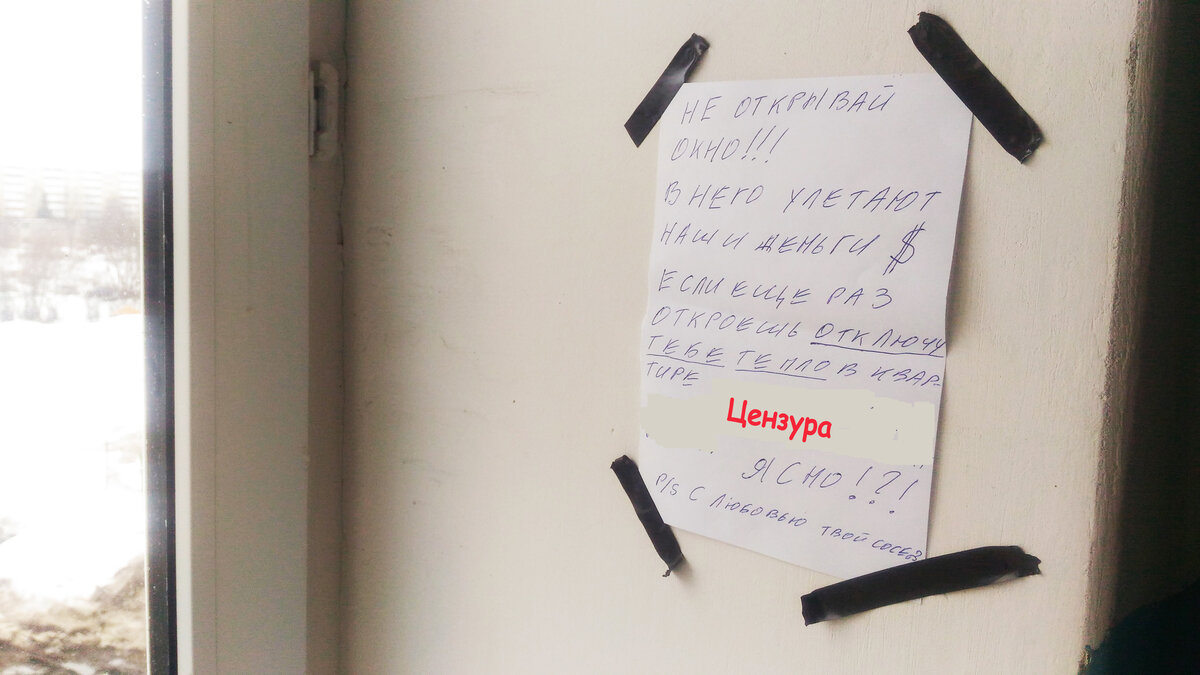 НЕ ОТКРЫВАЙ
ОКНО!!!
В НЕГО УЛЕТАЮТ
НАШИ ДЕНЬГИ $
ЕСЛИ ЕЩЕ РАЗ
ОТКРОЕШЬ ОТКЛЮЧУ
ТЕБЕ ТЕПЛО В КВАР-
ТИРЕ
Цензура
ЯСНО!?!
P/S С ЛЮБОВЬЮ ТВОЙ СОСЕД